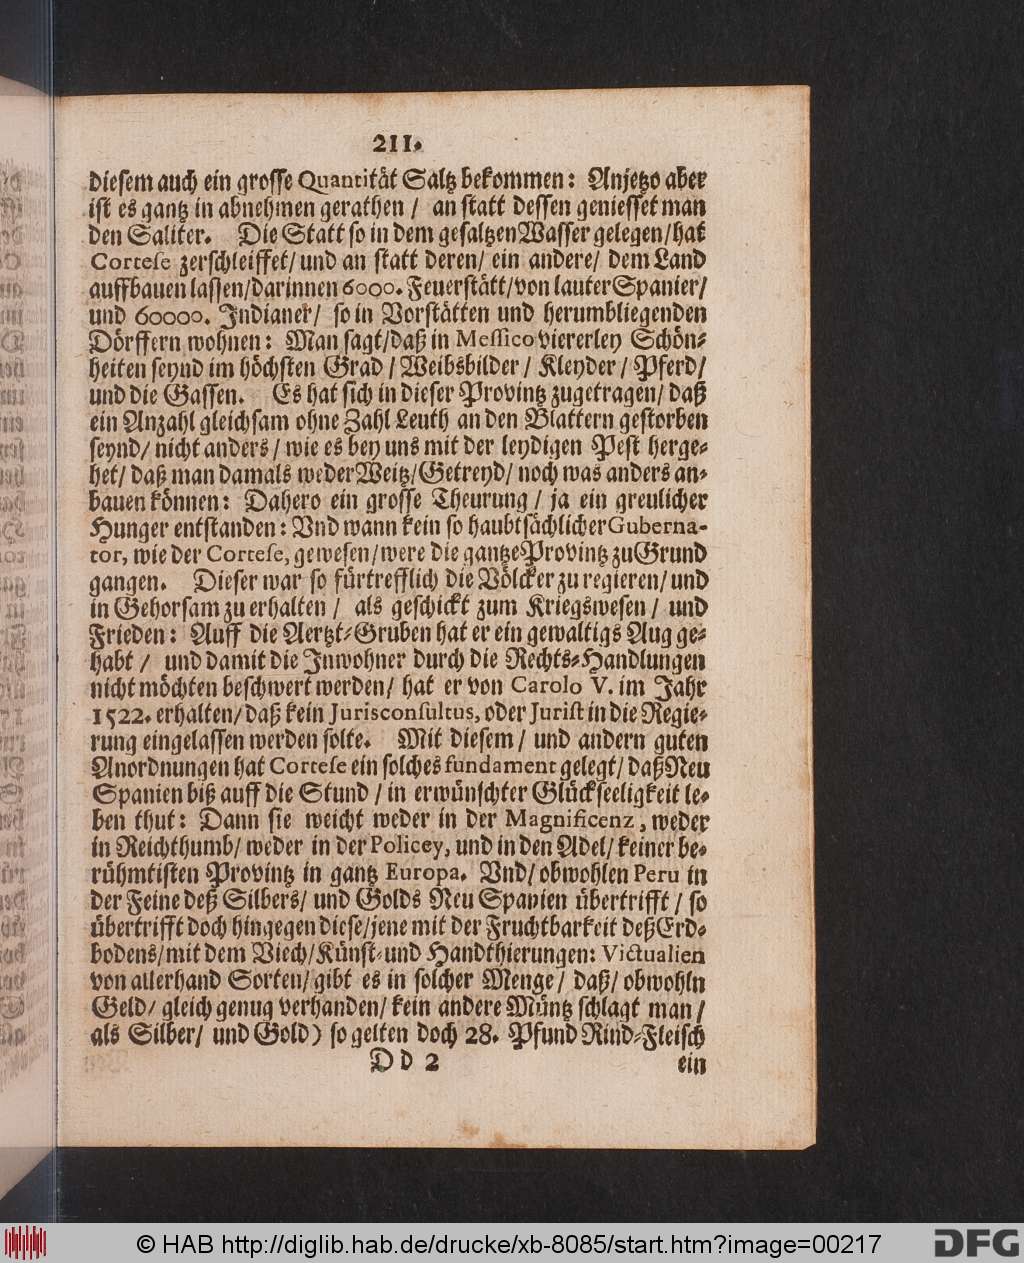 211.
diesem auch ein grosse Quantitåt Saltz bekommen: Anjetzo aber
ist es gantz in abnehmen gerathen / an statt dessen geniesset man
den Saliter. Die Statt so in dem gesaltzen Wasser gelegen/ hat
Cortese zerschleiffet/ und an statt deren/ ein andere/ dem Land
auffbauen lassen/ darinnen 6000. Feuerstått/ von lauter Spanier/
und 60000. Indianer/ so in Vorståtten und herumbliegenden
Dörffern wohnen: Man sagt/ daß in Messico viererley Schön-
heiten seynd im höchsten Grad / Weibsbilder / Kleyder / Pferd/
und die Gassen. Es hat sich in dieser Provintz zugetragen/ daß
ein Anzahl gleichsam ohne Zahl Leuth an den Blattern gestorben
seynd/ nicht anders/ wie es bey uns mit der leydigen Pest herge-
het/ daß man damals weder Weitz/ Getreyd/ noch was anders an-
bauen können: Dahero ein grosse Theurung / ja ein greulicher
Hunger entstanden: Vnd wann kein so haubtsåchlicher Guberna-
tor, wie der Cortese, gewesen/ were die gantze Provintz zu Grund
gangen. Dieser war so fürtrefflich die Völcker zu regieren/ und
in Gehorsam zu erhalten / als geschickt zum Kriegswesen / und
Frieden: Auff die Aertzt-Gruben hat er ein gewaltigs Aug ge-
habt / und damit die Inwohner durch die Rechts-Handlungen
nicht möchten beschwert werden/ hat er von Carolo V. im Jahr
1522. erhalten/ daß kein Jurisconsultus, oder Jurist in die Regie-
rung eingelassen werden solte. Mit diesem / und andern guten
Anordnungen hat Cortese ein solches fundament gelegt/ daß Neu
Spanien biß auff die Stund / in erwünschter Glückseeligkeit le-
ben thut: Dann sie weicht weder in der Magnificenz, weder
in Reichthumb/ weder in der Policey, und in den Adel/ keiner be-
rühmtisten Provintz in gantz Europa. Vnd/ obwohlen Peru in
der Feine deß Silbers/ und Golds Neu Spanien übertrifft / so
übertrifft doch hingegen diese/ jene mit der Fruchtbarkeit deß Erd-
bodens/ mit dem Viech/ Künst- und Handthierungen: Victualien
von allerhand Sorten/ gibt es in solcher Menge / daß/ obwohln
Geld/ gleich genug verhanden/ kein andere Müntz schlagt man /
als Silber/ und Gold) so gelten doch 28. Pfund Rind-Fleisch
D d 2 ein
© HAB http://diglib.hab.de/drucke/xb-8085/start.htm?image=00217
DFG